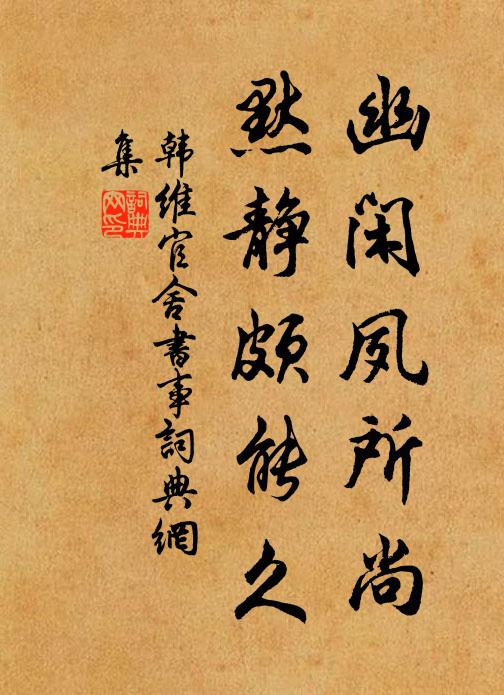 幽闲夙所尚
默静颇能久
韩维官舍书事詞典網
集
詞典
网印